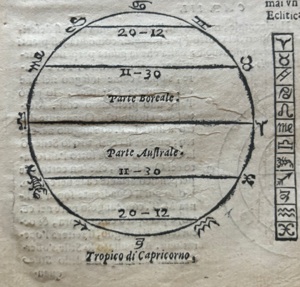 mai vn
Eclitica
20-12
11-30
Parte Boreale.
Parte Australe.
11-30
20-12
Tropico di Capricorno.